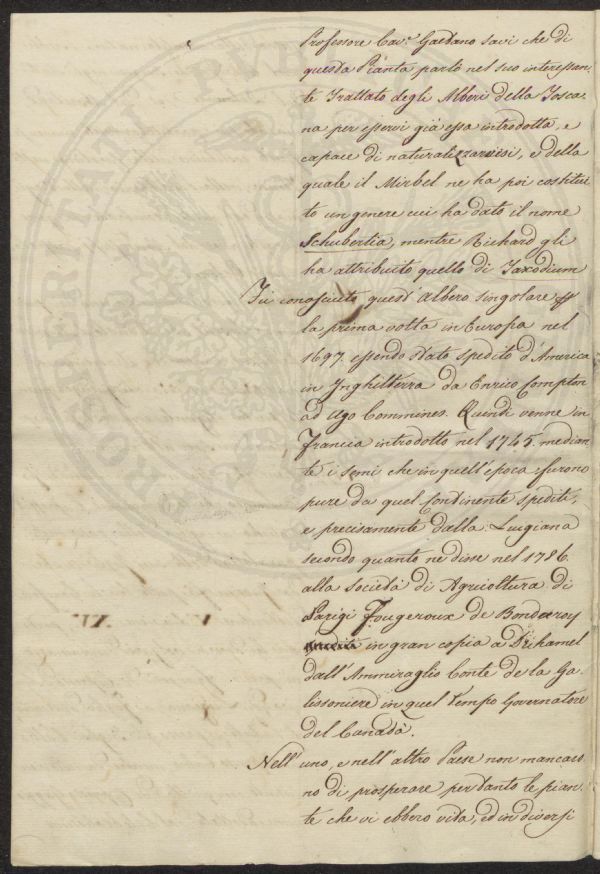 Professore Cav.r Gaetano Savi che di
questa Pianta parlò nel suo interessan-
te Trattato degli Alberi della Tosca-
na per esservi già essa introdotta, e
capace di naturalizzarvisi, e della
quale il Mirbel ne ha poi costitui-
to un genere cui ha dato il nome
Schubertia, mentre Richard gli
ha attribuito quello di Taxodium
Fù conosciuto quest'albero singolare
la prima volta in Europa nel
1697. essendo stato spedito d'America
in Inghilterra da Enrico Compton
ad Ugo Commines. Quindi venne in
Francia introdotto nel 1745. median-
te i semi che in quell'epoca furono
pure da quel Continente spediti,
e precisamente dalla Luigiana
secondo quanto ne disse nel 1786.
alla società di Agricoltura di
Parigi Fougeroux de Bondaroy
in gran copia a Duhamel
dall'Ammiraglio Conte de la Ga-
lissoniere in quel tempo Governatore
del Canadà.
Nell'uno, e nell'altro Paese non mancaro-
no di prosperare pertanto le pian-
te che vi ebbero vita, ed in diversi